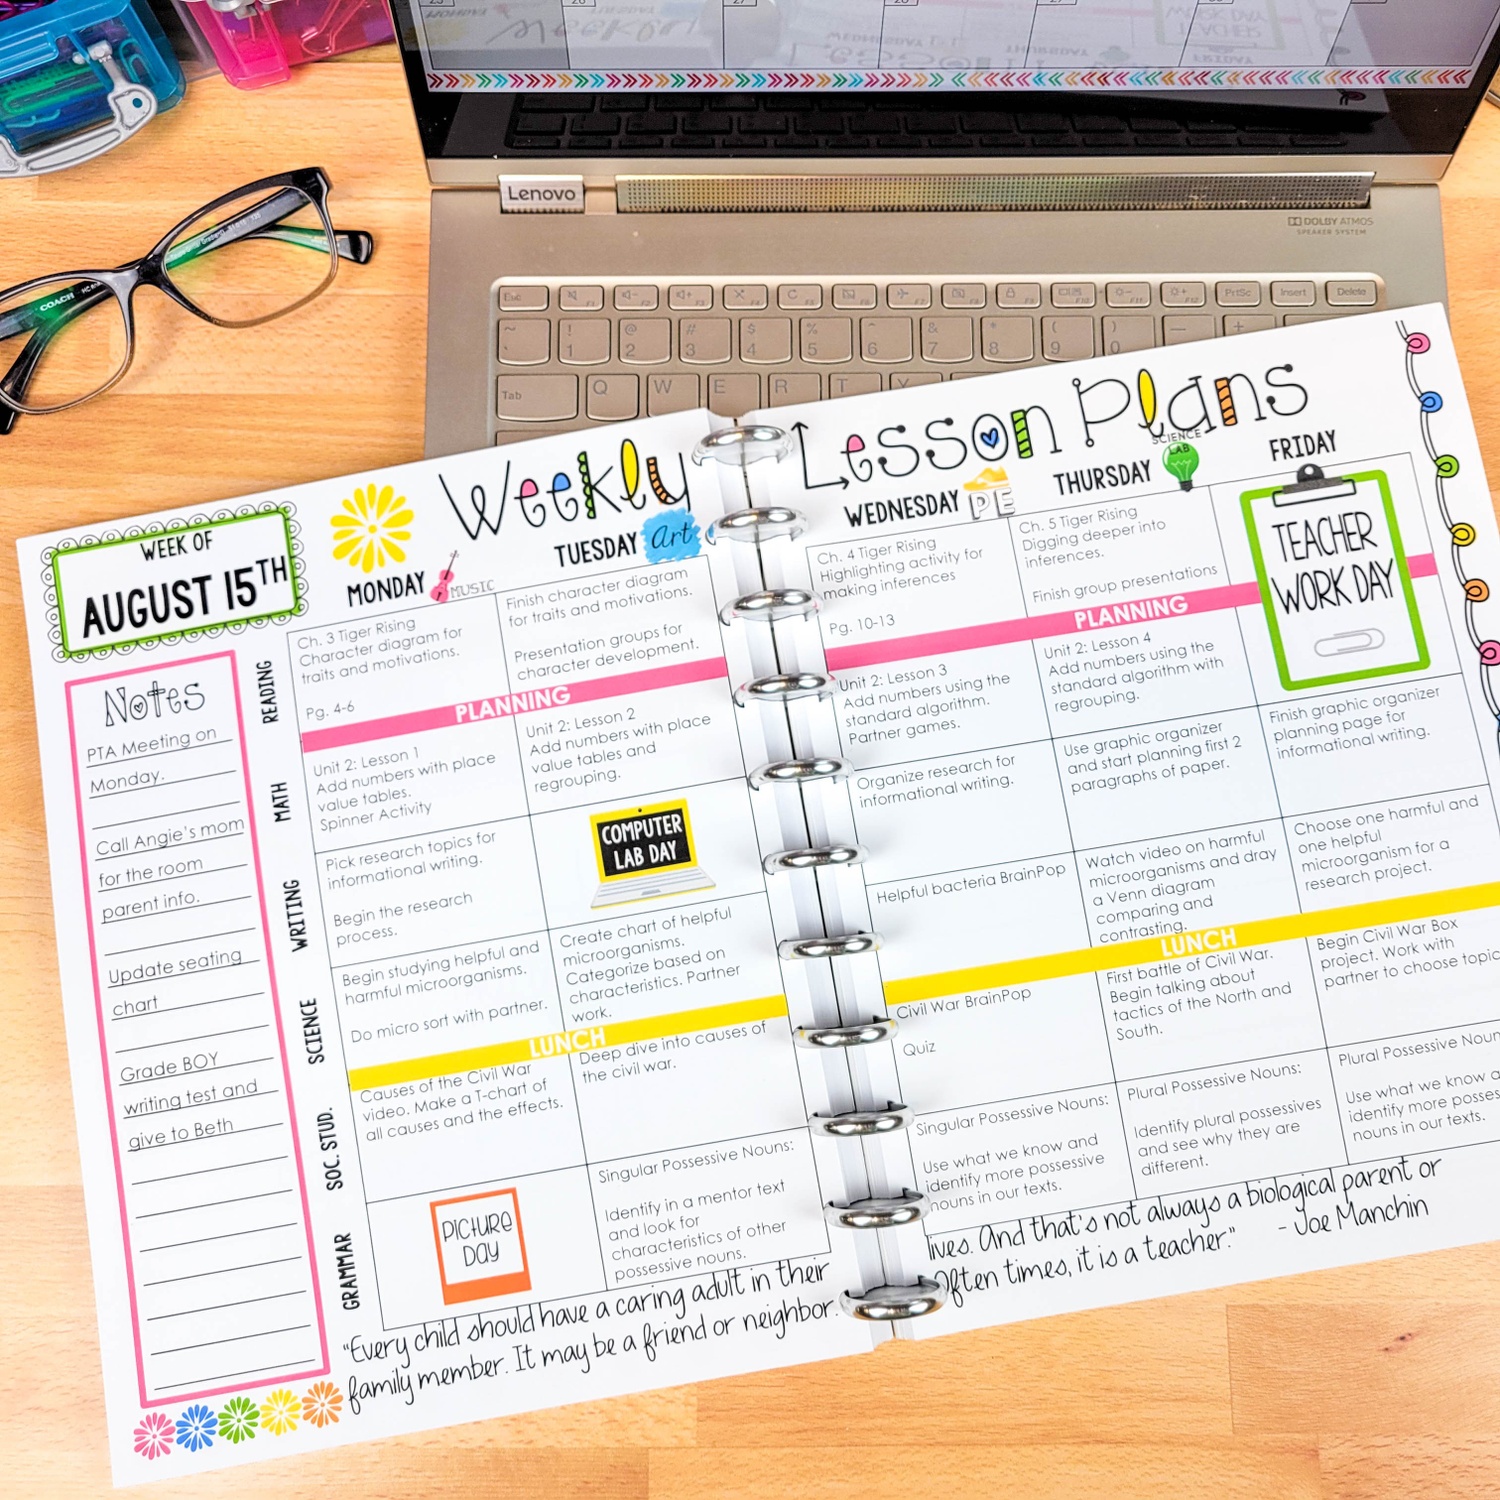 Lenovo
DOLBY ATMOS
SPEAKER SYSTEM
Esc
F1
F2
F3
F4
F5
F6
F7
F8
F9
F10
F11
F12
PrtSc
Insert
Delete
~
! 1
@ 2
# 3
$ 4
% 5
^ 6
& 7
* 8
( 9
) 0
Tab
Q
W
E
R
T
Y
COACH
Weekly Lesson Plans
WEEK OF
AUGUST 15TH
Notes
PTA Meeting on
Monday.
Call Angie's mom
for the room
parent info.
Update seating
chart
Grade BOY
writing test and
give to Beth
READING
MATH
WRITING
SCIENCE
SOC. STUD.
GRAMMAR
MONDAY
MUSIC
Ch. 3 Tiger Rising
Character diagram for
traits and motivations.
Pg. 4-6
PLANNING
Unit 2: Lesson 1
Add numbers with place
value tables.
Spinner Activity
Pick research topics for
informational writing.
Begin the research
process.
Begin studying helpful and
harmful microorganisms.
Do micro sort with partner.
LUNCH
Causes of the Civil War
video. Make a T-chart of
all causes and the effects.
PICTURE
DAY
TUESDAY
Art
Finish character diagram
for traits and motivations.
Presentation groups for
character development.
Unit 2: Lesson 2
Add numbers with place
value tables and
regrouping.
COMPUTER
LAB DAY
Create chart of helpful
microorganisms.
Categorize based on
characteristics. Partner
work.
Deep dive into causes of
the civil war.
Singular Possessive Nouns:
Identify in a mentor text
and look for
characteristics of other
possessive nouns.
WEDNESDAY
PE
Ch. 4 Tiger Rising
Highlighting activity for
making inferences
Pg. 10-13
Unit 2: Lesson 3
Add numbers using the
standard algorithm.
Partner games.
Organize research for
informational writing.
Helpful bacteria BrainPop
Civil War BrainPop
Quiz
Singular Possessive Nouns:
Use what we know and
identify more possessive
nouns in our texts.
THURSDAY
SCIENCE
LAB
Ch. 5 Tiger Rising
Digging deeper into
inferences.
Finish group presentations
PLANNING
Unit 2: Lesson 4
Add numbers using the
standard algorithm with
regrouping.
Use graphic organizer
and start planning first 2
paragraphs of paper.
Watch video on harmful
microorganisms and dray
a Venn diagram
comparing and
contrasting.
LUNCH
First battle of Civil War.
Begin talking about
tactics of the North and
South.
Plural Possessive Nouns:
Identify plural possessives
and see why they are
different.
FRIDAY
TEACHER
WORK DAY
Finish graphic organizer
planning page for
informational writing.
Choose one harmful and
one helpful
microorganism for a
research project.
Begin Civil War Box
project. Work with
partner to choose topic
Plural Possessive Noun
Use what we know a
identify more posses
nouns in our texts.
"Every child should have a caring adult in their
family member. It may be a friend or neighbor.
lives. And that's not always a biological parent or
Often times, it is a teacher." - Joe Manchin